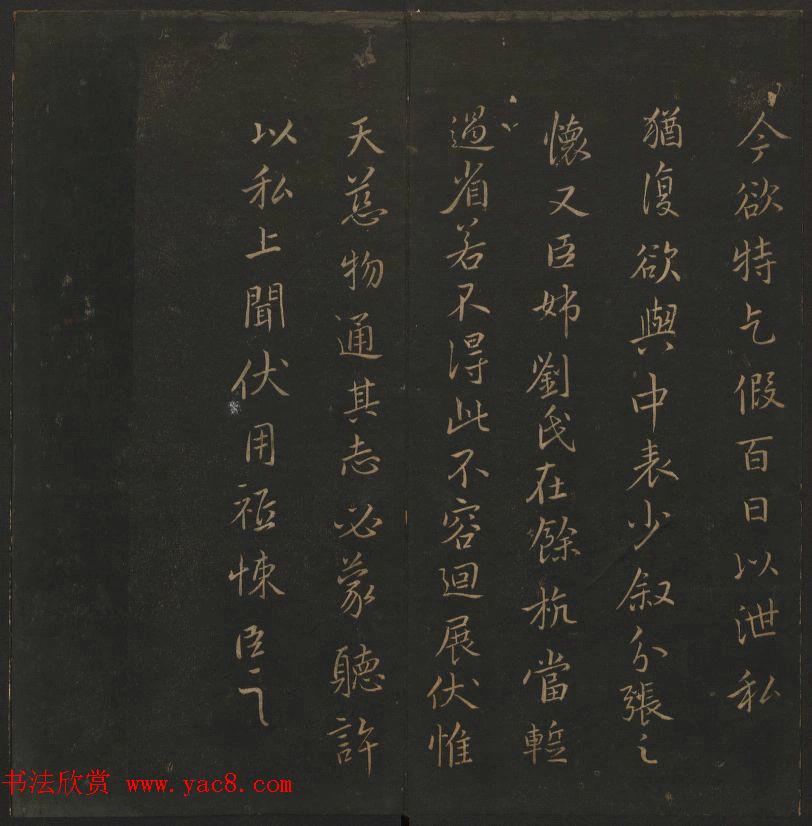 今欲特乞假百日以泄私
猶復欲與中表少叙分張之
懷又臣姊劉氏在餘杭當蹔
過省若不得此不容廻展伏惟
天慈物通其志必蒙聽許
以私上聞伏用祗悚臣
书法欣赏 www.yac8.com